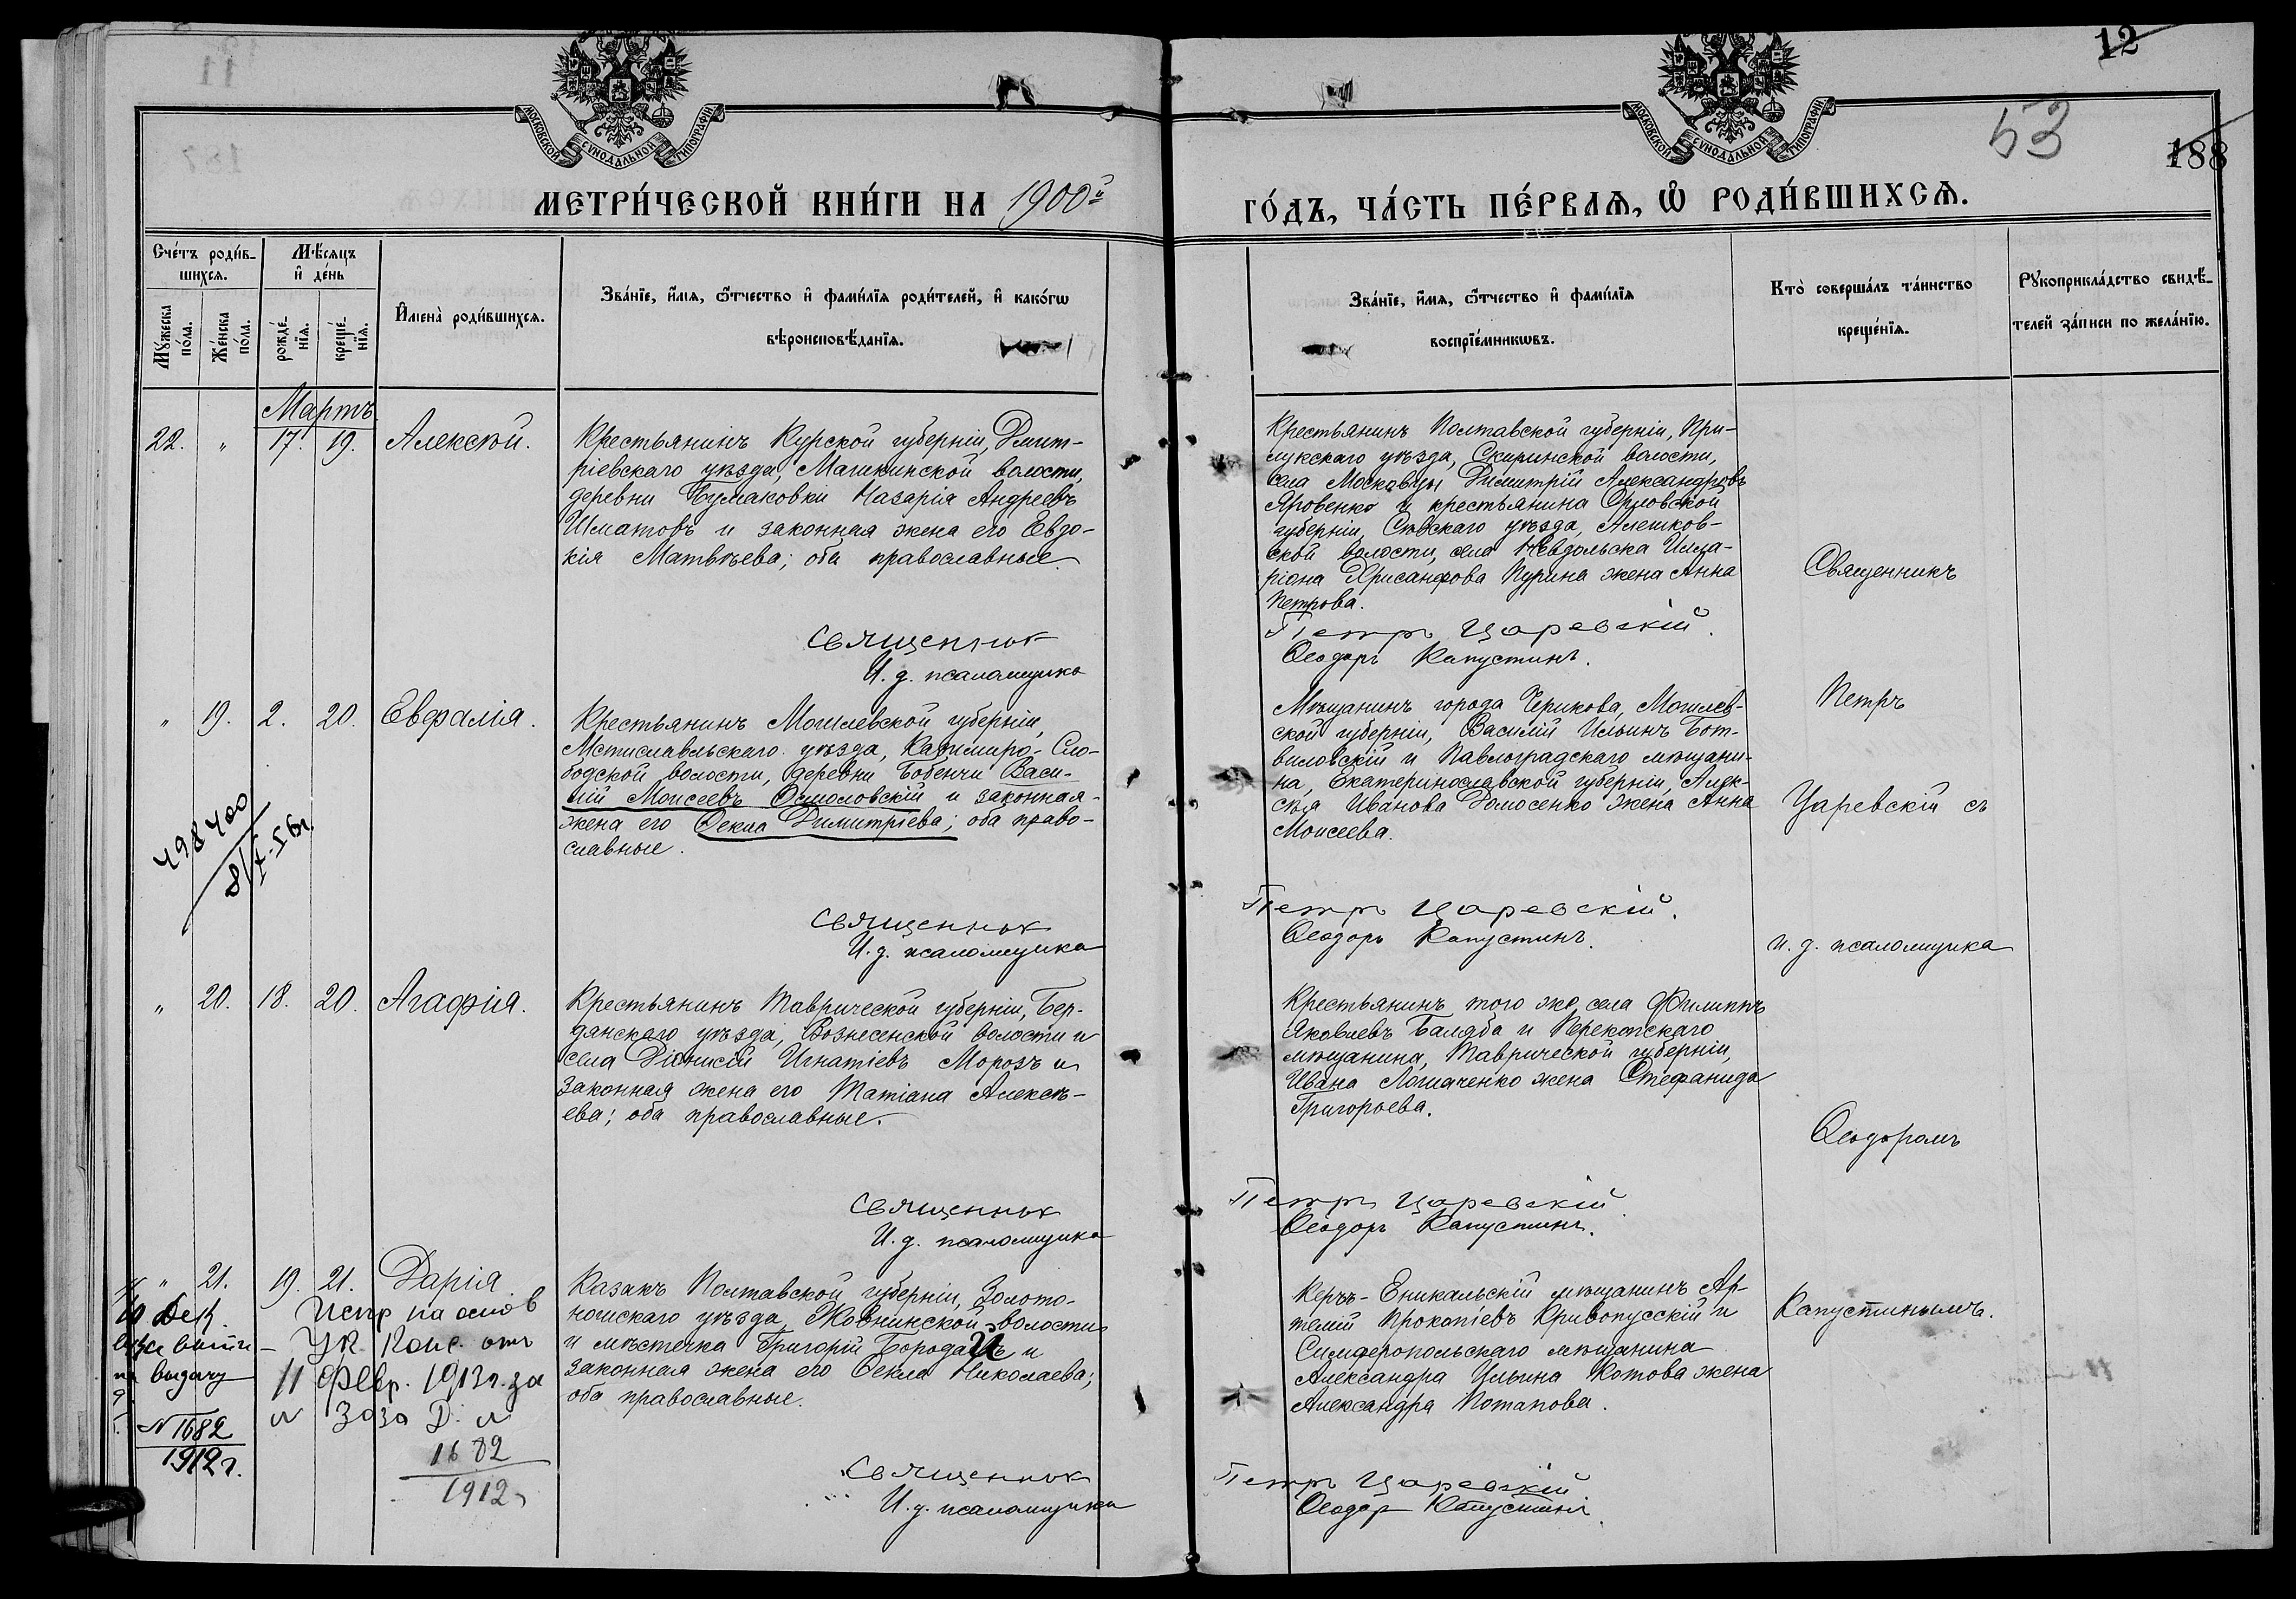 12
53
188
МОСКОВСКОЙ СѴНОДАЛЬНОЙ ТИПОГРАФІИ
МОСКОВСКОЙ СѴНОДАЛЬНОЙ ТИПОГРАФІИ
МЕТРИ́ЧЕСКОЙ КНИ́ГИ НА 1900й
ГО́ДЪ, ЧА́СТЬ ПЕ́РВАѦ, Ѿ РОДИ́ВШИХСѦ.
Сче́тъ роди́в-
шихсѧ.
Мѣ́сѧцъ
и҆ де́нь
Му́жеска по́ла.
Же́нска по́ла.
рожде́-нїѧ.
креще́-нїѧ.
И҆мена̀ роди́вшихсѧ.
Зва́нїе, и҆́мѧ, ѻ҆́тчество и҆ фами́лїѧ роди́телей, и҆ како́гѡ
вѣроисповѣ́данїѧ.
Зва́нїе, и҆́мѧ, ѻ҆́тчество и҆ фами́лїѧ
воспрїе́мникѡвъ.
Кто̀ соверша́лъ та́инство
креще́нїѧ.
Рꙋкоприкла́дство свидѣ́-
телей за́писи по жела́нїю.
Мартъ
22. " 17. 19. Алексѣй.
Крестьянинъ Курской губерніи, Дмит-
ріевскаго уѣзда, Машкинской волости,
деревни Бумаковки Назарія Андреевъ
Шматовъ и законная жена его Евдо-
кія Матвѣева; оба православные.
Священник
И. д. псаломщика
Крестьянинъ Полтавской губерніи, При-
лукскаго уѣзда, Скиринской волости,
села Московцы Димитрій Александровъ
Яровенко и крестьянина Орловской
губерніи, Сѣвскаго уѣзда, Алешков-
ской волости, села Невдольска Илла-
ріона Хрисанфова Пурина жена Анна
Петрова.
Петръ Царевскій.
Ѳеодоръ Капустинъ.
Священникъ
" 19. 2. 20. Евфалія.
Крестьянинъ Могилевской губерніи,
Мстиславльскаго уѣзда, Казимиро-Сло-
бодской волости, деревни Бобенчи Васи-
лій Моисеевъ Осмоловскій и законная
жена его Ѳекла Димитріева; оба право-
славные.
498400
Священник
И. д. псаломщика
Мѣщанинъ города Черикова, Могилев-
ской губерніи, Василій Ильинъ Бот-
виловскій и Павлоградскаго мѣщани-
на, Екатеринославской губерніи, Алек-
сѣя Иванова Домосенко жена Анна
Моисеева.
Петръ Царевскій.
Ѳеодоръ Капустинъ.
Петръ
Царевскій съ
и. д. псаломщика
" 20. 18. 20. Агафія.
Крестьянинъ Таврической губерніи, Бер-
дянскаго уѣзда, Вознесенской волости и
села Діонисій Игнатіевъ Морозъ и
законная жена его Татіана Алексѣ-
ева; оба православные.
Священник
И. д. псаломщика
Крестьянинъ того же села Филиппъ
Яковлевъ Баляба и Перекопскаго
мѣщанина, Таврической губерніи,
Ивана Логиаченко жена Стефанида
Григорьева.
Петръ Царевскій
Ѳеодоръ Капустинъ.
Ѳеодоромъ
" 21. 19. 21. Дарія.
Казакъ Полтавской губерніи, Золото-
ношскаго уѣзда, Жовнинской волости
и мѣстечка Григорій Бородай и
законная жена его Ѳекла Николаева;
оба православные.
10 Дек.
выдачу
N 1682
1912 г.
Испр на основ
Ук. Конс. отъ
11 Февр. 1913 г. за
1682
1912
Священник
И. д. псаломщика
Керчь-Еникальскій мѣщанинъ Ар-
темій Прокопіевъ Кривопусскій и
Симферопольскаго мѣщанина
Александра Ильина Котова жена
Александра Потапова.
Петръ Царевскій
Ѳеодор Капустинъ.
Капустинымъ.